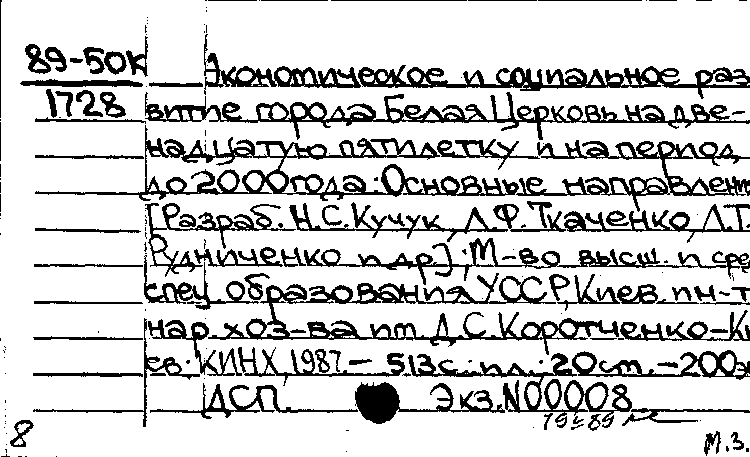 89-50К
1728
Экономическое и социальное раз
витие города Белая Церковь на две-
надцатую пятилетку и на период
до 2000 года: Основные направлени
[Разраб. Н.С.Кучук, Л.Ф.Ткаченко, Л.Т.
Рудниченко и др]; М-во высш. и сре
спец образования УССР, Киев. ин-т
нар. хоз-ва им. Д.С.Коротченко-Ки
ев: КИНХ, 1987.- 513с.: ил.; 20см.-200э
ДСП. Экз.N00008
8
М.З.